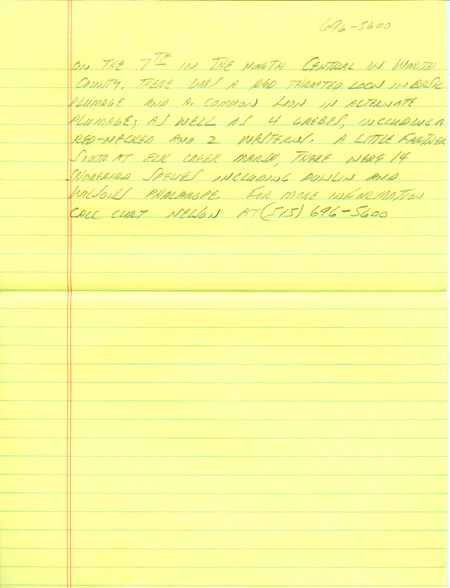 696-5600
ON THE 7TH IN THE NORTH CENTRAL IN WORTH
COUNTY, THERE WAS A RED THROATED LOON IN BASIC
PLUMAGE AND A COMMON LOON IN ALTERNATE
PLUMAGE; AS WELL AS 4 GREBES, INCLUDING A
RED-NECKED AND 2 WESTERNS. A LITTLE FARTHER
SOUTH AT ELK CREEK MARSH, THERE WERE 14
SHOREBIRD SPECIES INCLUDING DUNLIN AND
WILSON'S PHALAROPE FOR MORE INFORMATION
CALL CURT NELSON AT (515) 696-5600